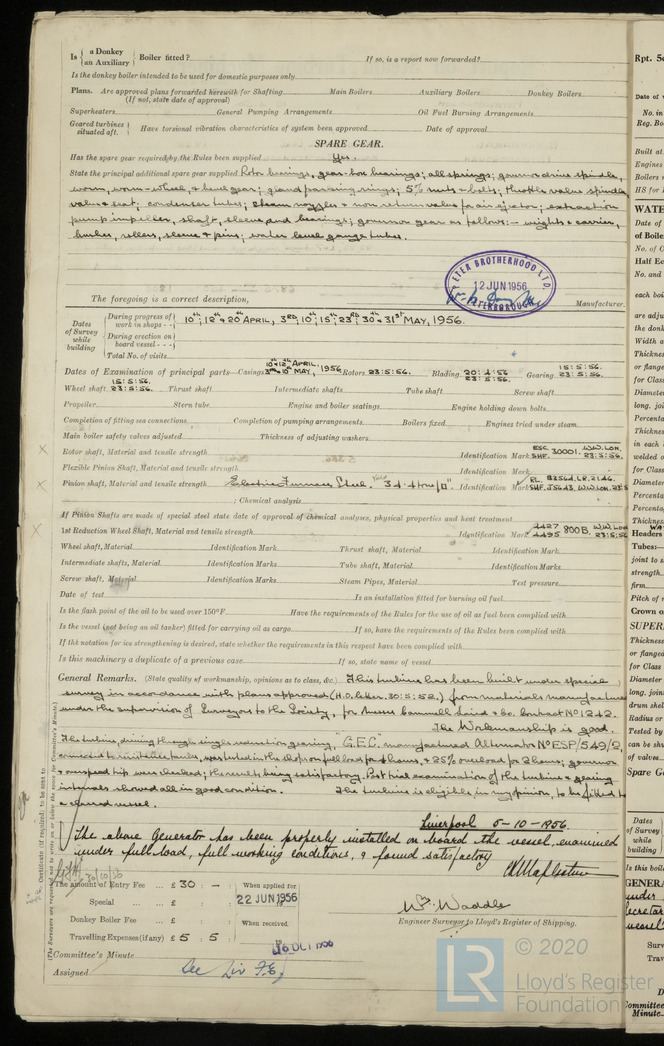 Is { a Donkey / an Auxiliary } Boiler fitted? If so, is a report now forwarded?
Is the donkey boiler intended to be used for domestic purposes only
Plans. Are approved plans forwarded herewith for Shafting Main Boilers Auxiliary Boilers Donkey Boilers
(If not, state date of approval)
Superheaters General Pumping Arrangements Oil Fuel Burning Arrangements
Geared turbines situated aft. } Have torsional vibration characteristics of system been approved Date of approval
SPARE GEAR.
Has the spare gear required by the Rules been supplied Yes.
State the principal additional spare gear supplied Rotor bearings, gear-box bearings; all springs; governor drive spindle,
worm, worm-wheel & bevel gear; gland packing rings; 5% nuts & bolts; throttle valve spindle,
valve & seat; condenser tubes; steam nozzles & non return valve for air ejector; extraction
pump impeller, shaft, sleeve and bearings; governor gear as follows:- weights & carrier,
bushes, rollers, sleeve & pins; water level gauge tubes.
PETER BROTHERHOOD LTD.
12 JUN 1956
PETERBOROUGH
The foregoing is a correct description, Manufacturer.
Dates of Survey while building
During progress of work in shops - - 10th; 12th & 20th APRIL, 3RD; 10th; 15th; 23RD; 30th & 31ST MAY, 1956.
During erection on board vessel - - -
Total No. of visits
Dates of Examination of principal parts—Casings 10th & 12th APRIL, 3RD & 10th MAY, 1956 Rotors 23:5:56. Blading 20:4:56 23:5:56. Gearing 15:5:56. 23:5:56.
Wheel shaft 15:5:56. 23:5:56. Thrust shaft Intermediate shafts Tube shaft Screw shaft
Propeller Stern tube Engine and boiler seatings Engine holding down bolts
Completion of fitting sea connections Completion of pumping arrangements Boilers fixed Engines tried under steam
Main boiler safety valves adjusted Thickness of adjusting washers
Rotor shaft, Material and tensile strength Identification Mark ESC 30001. W.W. LON. SHF. 23:5:56.
Flexible Pinion Shaft, Material and tensile strength Identification Mark
Pinion shaft, Material and tensile strength Electric Furnace Steel. Identification Mark
; Chemical analysis
If Pinion Shafts are made of special steel state date of approval of chemical analyses, physical properties and heat treatment
1st Reduction Wheel Shaft, Material and tensile strength Identification Mark 4427 4495 800B. W.W. LON 23:5:56
Wheel shaft, Material Identification Mark Thrust shaft, Material Identification Mark
Intermediate shafts, Material Identification Marks Tube shaft, Material Identification Marks
Screw shaft, Material Identification Marks Steam Pipes, Material Test pressure
Date of test Is an installation fitted for burning oil fuel
Is the flash point of the oil to be used over 150°F. Have the requirements of the Rules for the use of oil as fuel been complied with
Is the vessel (not being an oil tanker) fitted for carrying oil as cargo If so, have the requirements of the Rules been complied with
If the notation for ice strengthening is desired, state whether the requirements in this respect have been complied with
Is this machinery a duplicate of a previous case If so, state name of vessel
General Remarks. (State quality of workmanship, opinions as to class, &c.) This turbine has been built under special
survey in accordance with plans approved (H.O. letter. 30:5:52.) from materials manufactured
under the supervision of Surveyors to the Society, for Messrs Cammell Laird & Co. Contract No 1242.
The Workmanship is good.
The turbine, driving through single reduction gearing, "G.E.C." manufactured Alternator No ESP/549/2,
connected to resistance tanks, was tested in the shop on full load for 4 hours, & 25% overload for 2 hours; governor
& overspeed trip were checked; the results being satisfactory. Post trial examination of the turbine & gearing
internals showed all in good condition. The turbine is eligible in my opinion, to be fitted to
a classed vessel.
Liverpool 5-10-1956.
The above Generator has been properly installed on board the vessel, examined
under full load, full working conditions, & found satisfactory
The amount of Entry Fee ... £ 30 : - When applied for
Special ... £ : 22 JUN 1956
Donkey Boiler Fee ... £ : When received.
Travelling Expenses (if any) £ 5 : 5
Wm. Waddle
Engineer Surveyor to Lloyd's Register of Shipping.
Committee's Minute
Assigned See Liv F.E.
© 2020
LR Lloyd's Register
Foundation